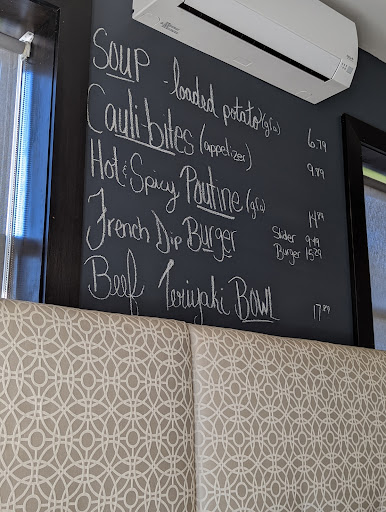 Soup - loaded potato (gfa) 6.79
Cauli-bites (appetizer) 9.89
Hot & Spicy Poutine (gfa) 14.89
French Dip Burger Slider 9.49
Burger 15.29
Beef Teriyaki Bowl 17.89